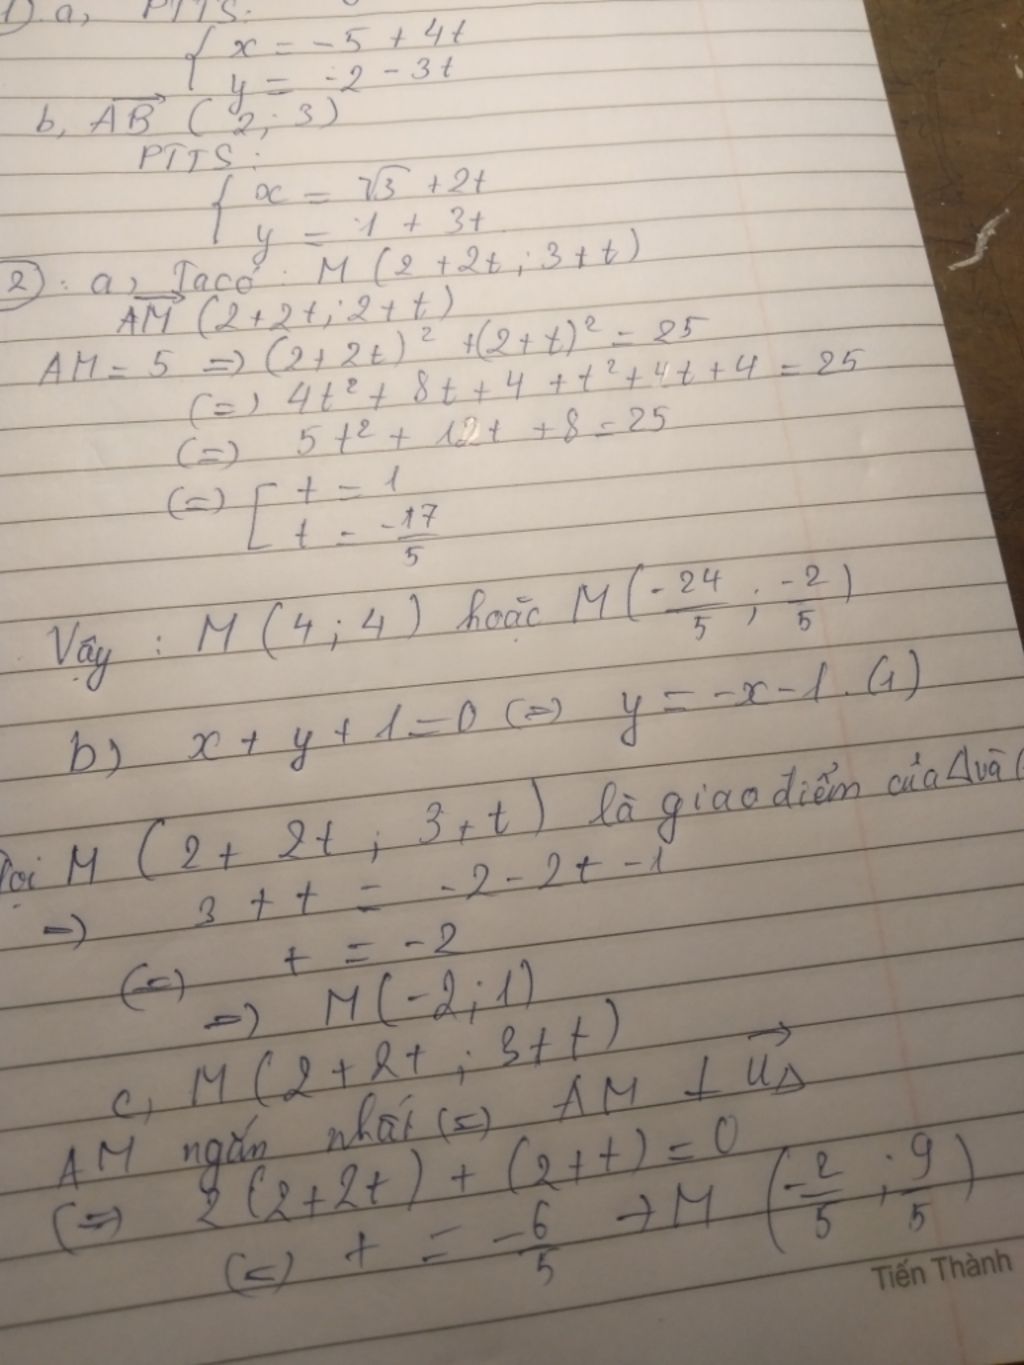 1) a, PTTS:
{ x = -5 + 4t
y = -2 - 3t
b, AB→ (2; 3)
PTTS:
{ x = √3 + 2t
y = 1 + 3t
2): a, Ta có: M (2 + 2t; 3 + t)
AM→ (2 + 2t; 2 + t)
AM = 5 => (2 + 2t)² + (2 + t)² = 25
(=) 4t² + 8t + 4 + t² + 4t + 4 = 25
(=) 5t² + 12t + 8 = 25
(=) [ t = 1
t = -17/5
Vậy: M (4; 4) hoặc M (-24/5; -2/5)
b) x + y + 1 = 0 (=) y = -x - 1. (1)
M (2 + 2t; 3 + t) là giao điểm của Δ và (
=) 3 + t = -2 - 2t - 1
(=) t = -2
=) M (-2; 1)
c, M (2 + 2t; 3 + t)
AM ngắn nhất (=) AM ⊥ u→Δ
(=) 2 (2 + 2t) + (2 + t) = 0
(=) t = -6/5 → M (-2/5; 9/5)
Tiến Thành